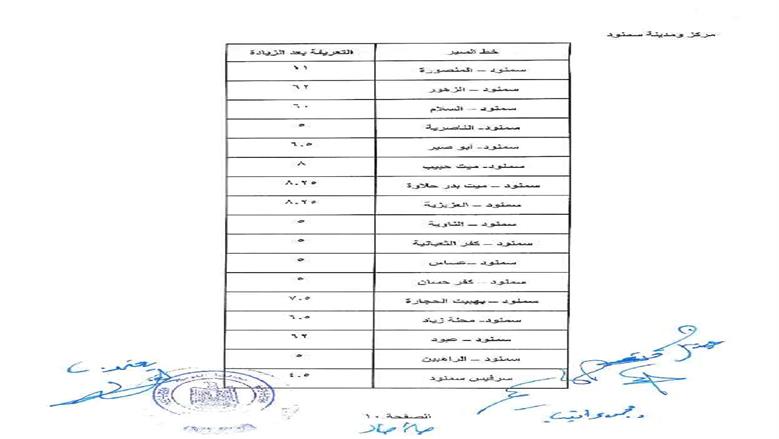 مركز ومدينة سمنود
خط السير	التعريفة بعد الزيادة
سمنود – المنصورة	١١
سمنود – الزهور	٦٢
سمنود – السلام	٦٠
سمنود – الناصرية	٥
سمنود – ابو صير	٦.٥
سمنود – ميت حبيب	٨
سمنود – ميت بدر حلاوة	٨.٢٥
سمنود – العزيزية	٨.٢٥
سمنود – الناوية	٥
سمنود – كفر الثعبانية	٥
سمنود – عساس	٥
سمنود – كفر حسان	٥
سمنود – بهبيت الحجارة	٧.٥
سمنود – محلة زياد	٦.٥
سمنود – عبود	٦٢
سمنود – الراهبين	٥
سرفيس سمنود	٤.٥
الصفحة ١٠